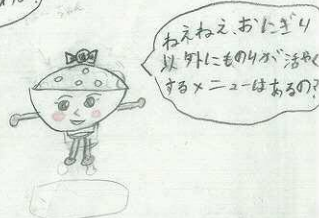 ねえねえ、おにぎり
以外にものりが活やく
するメニューはあるの?